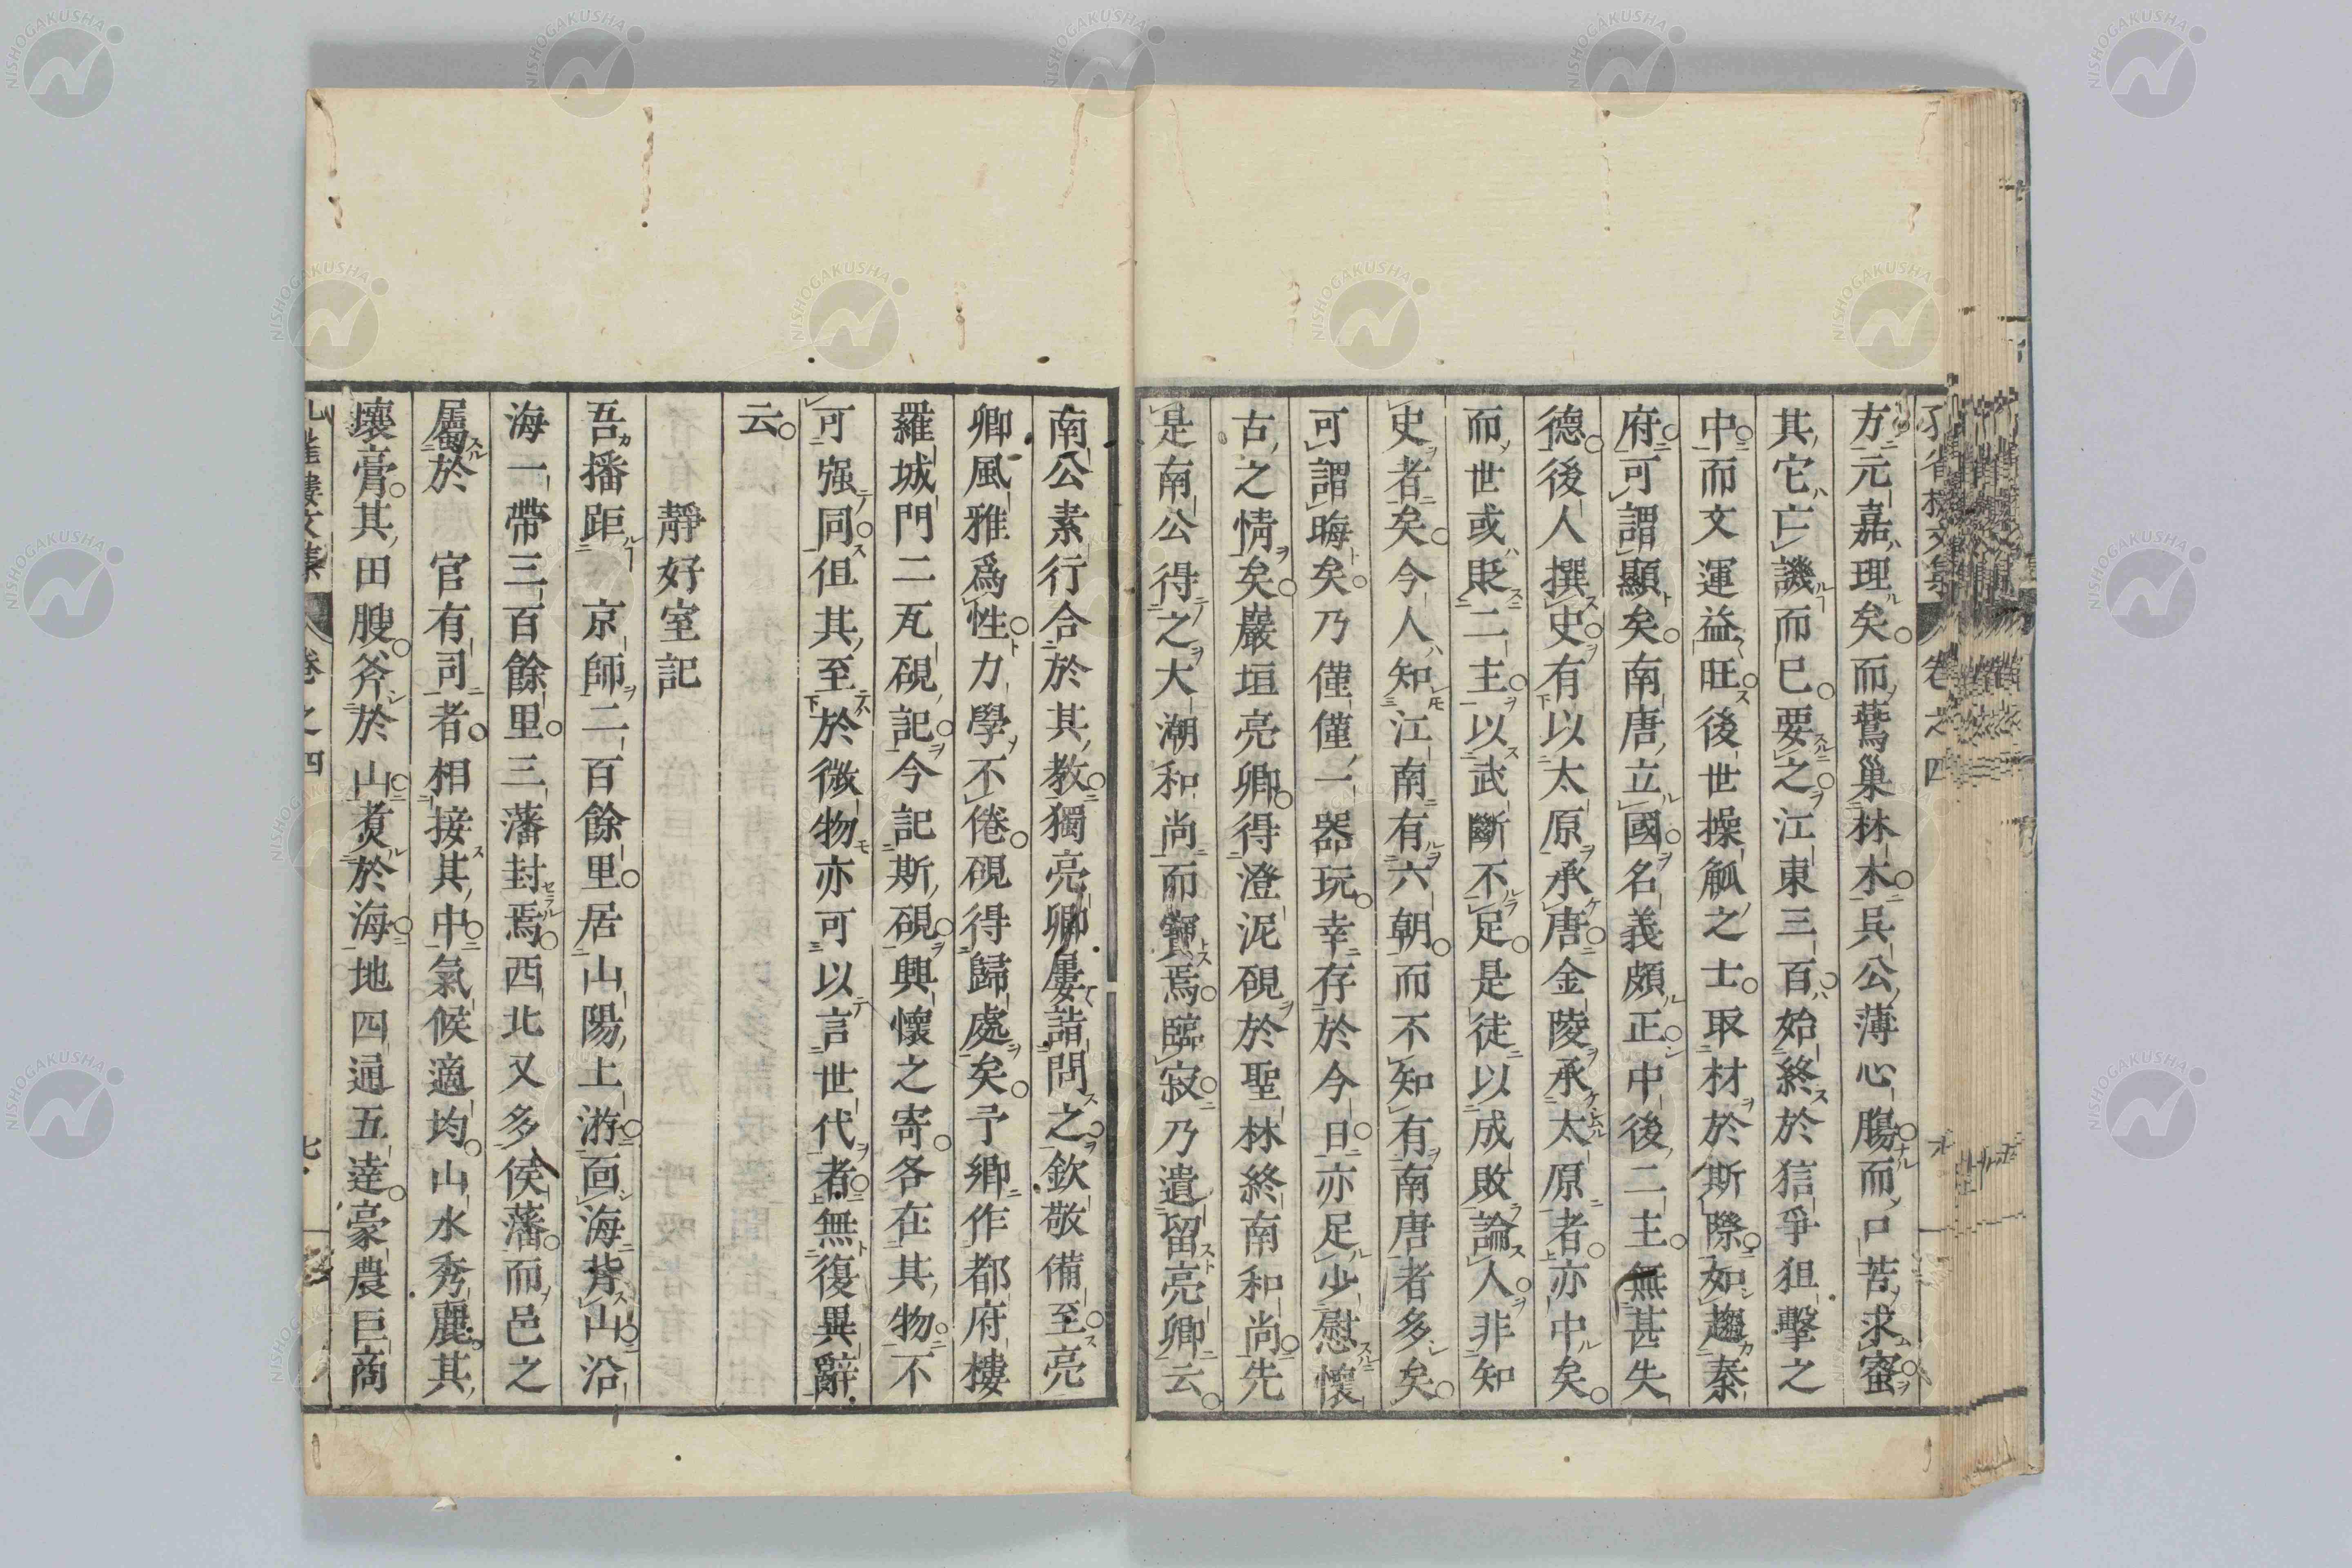 方元嘉理矣而鶯巢林木兵公薄心腸而口苦求蜜
其它亡譏而已要之江東三百始終於狙爭狙擊之
中而文運益旺後世操觚之士取材於斯際如趨秦
府可謂顯矣南唐立國名義頗正中後二主無甚失
德後人撰史有以太原承唐金陵承太原者亦中矣
而世或貶二主以武斷不足是徒以成敗論人非知
史者矣今人知江南有六朝而不知有南唐者多矣
可謂晦矣乃僅僅一器玩幸存於今日亦足少慰懷
古之情矣巖垣亮卿得澄泥硯於聖林終南和尚先
是南公得之大潮和尚而寶焉臨寂乃遺留亮卿云
南公素行合於其教獨亮卿屢詣問之欽敬備至亮
卿風雅爲性力學不倦硯得歸處矣予卿作都府樓
羅城門二瓦硯記今記斯硯興懷之寄各在其物不
可强同但其至於微物亦可以言世代者無復異辭
云
靜好室記
吾播距京師二百餘里居山陽上游面海背山沿
海一帶三百餘里三藩封焉西北又多侯藩而邑之
屬於官有司者相接其中氣候適均山水秀麗其
壤膏其田腴斧於山煮於海地四通五達豪農巨商
卷之四
七